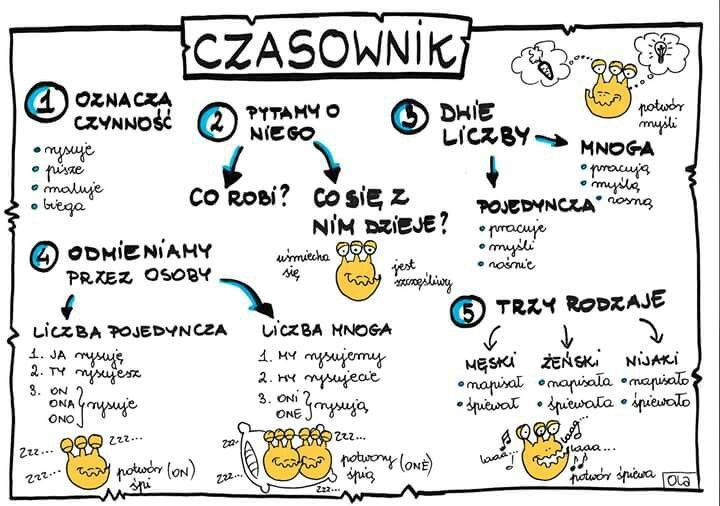 CZASOWNIK
1 OZNACZA
CZYNNOŚĆ
rysuje
pisze
maluje
biega
2 PYTAMY O
NIEGO
CO ROBI?
CO SIĘ Z
NIM DZIEJE?
uśmiecha
się
jest
szczęśliwy
3 DWIE
LICZBY
potwór
myśli
MNOGA
pracują
myślą
rosną
POJEDYNCZA
pracuje
myśli
rośnie
4 ODMIENIAMY
PRZEZ OSOBY
LICZBA POJEDYNCZA
1. JA rysuję
2. TY rysujesz
3. ON
ONA
ONO
rysuje
zzz...
zzz...
zzz...
potwór (ON)
śpi
LICZBA MNOGA
1. MY rysujemy
2. WY rysujecie
3. ONI
ONE
rysują
zzz..
zzz...
zzz...
zzz...
potwory (ONE)
śpią
5 TRZY RODZAJE
MĘSKI
napisał
śpiewał
ŻEŃSKI
napisała
śpiewała
NIJAKI
napisało
śpiewało
laaa...
laaa...
laaa...
potwór śpiewa
Ola